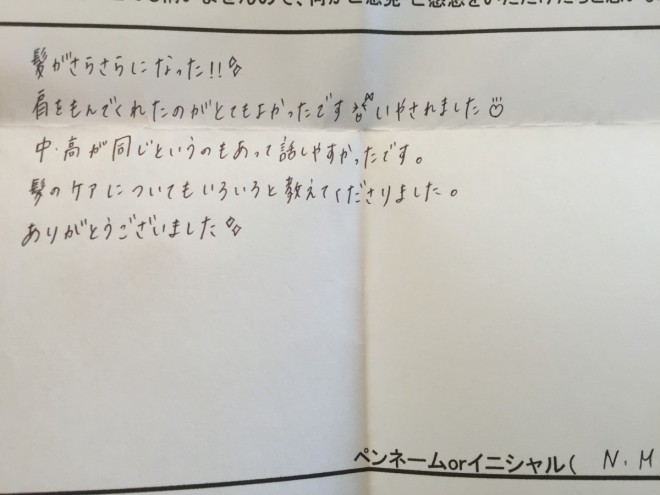 髪がさらさらになった!!
肩をもんでくれたのがとてもよかったです いやされました
中・高が同じというのもあって話しやすかったです。
髪のケアについてもいろいろと教えてくださりました。
ありがとうございました
ペンネームorイニシャル( N.M